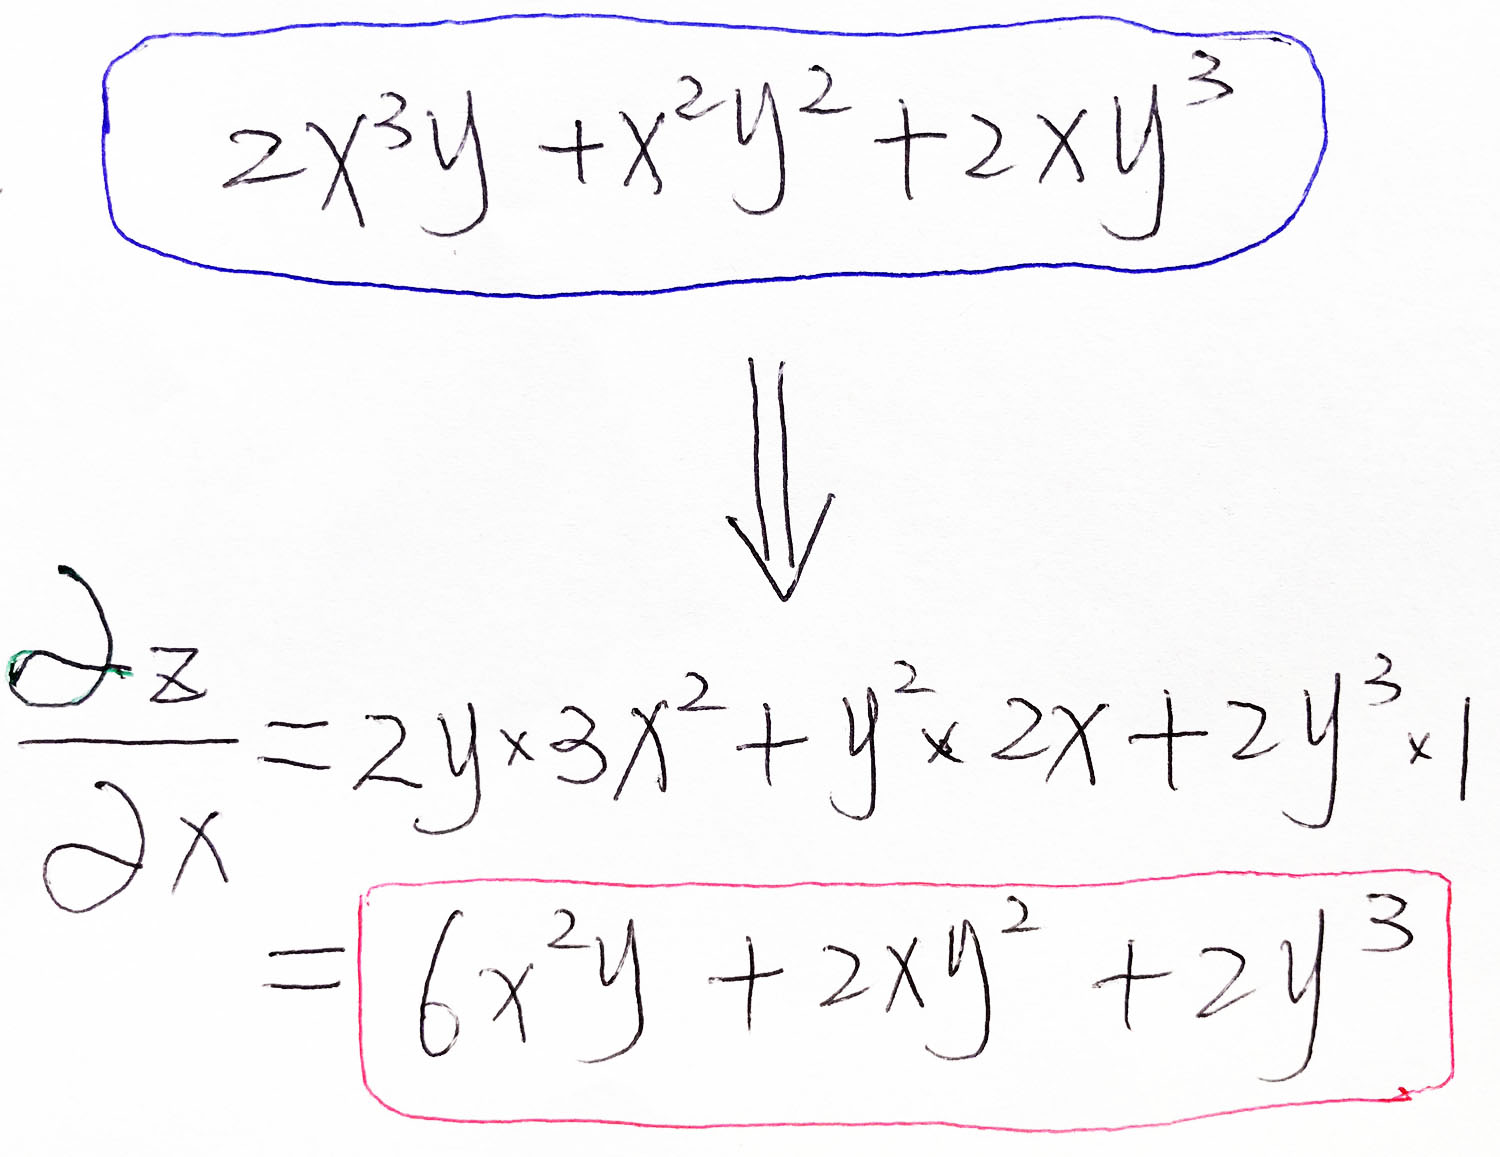 2x³y + x²y² + 2xy³
∂z/∂x = 2y × 3x² + y² × 2x + 2y³ × 1
= 6x²y + 2xy² + 2y³